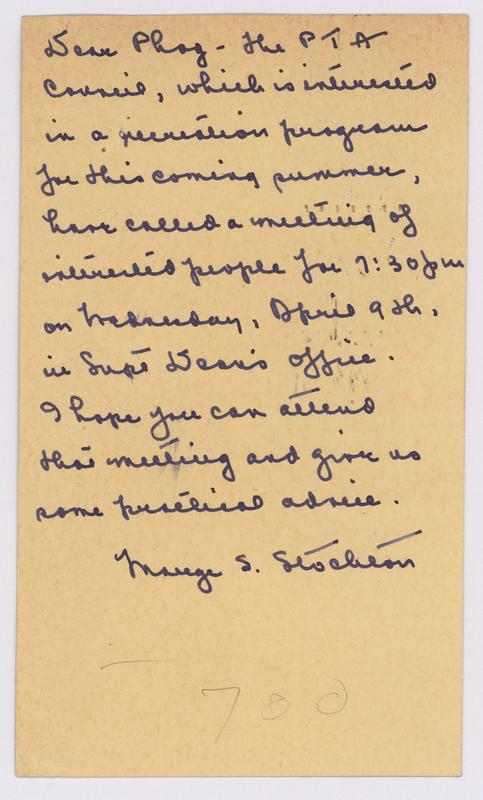 Dear Phog - the P T A
Council, which is interested
in a recreation program
for this coming summer,
have called a meeting of
interested people for 7:30 pm
on Wednesday, April 9th,
in Supt Dean's office.
I hope you can attend
that meeting and give us
some practical advice.
Marge S. Stockton
700